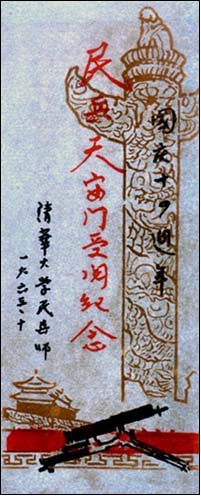 國庆十四週年
民兵天安门受阅纪念
清華大学民兵师
一九六三、十